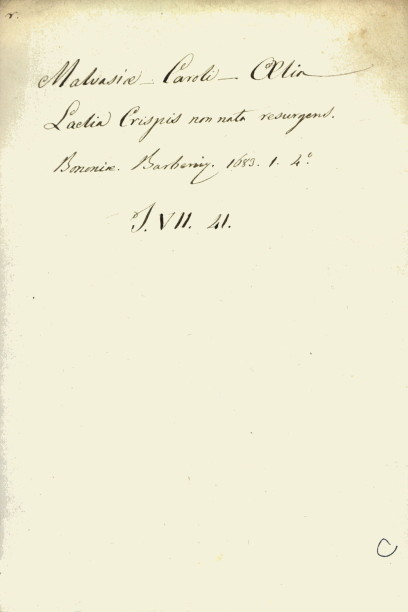 r.
Malvasiæ - Caroli - Ælia
Laelia Crispis non nata resurgens.
Bononiæ. Barberiis. 1683. 1. 4.º
J. VII. 41.
C